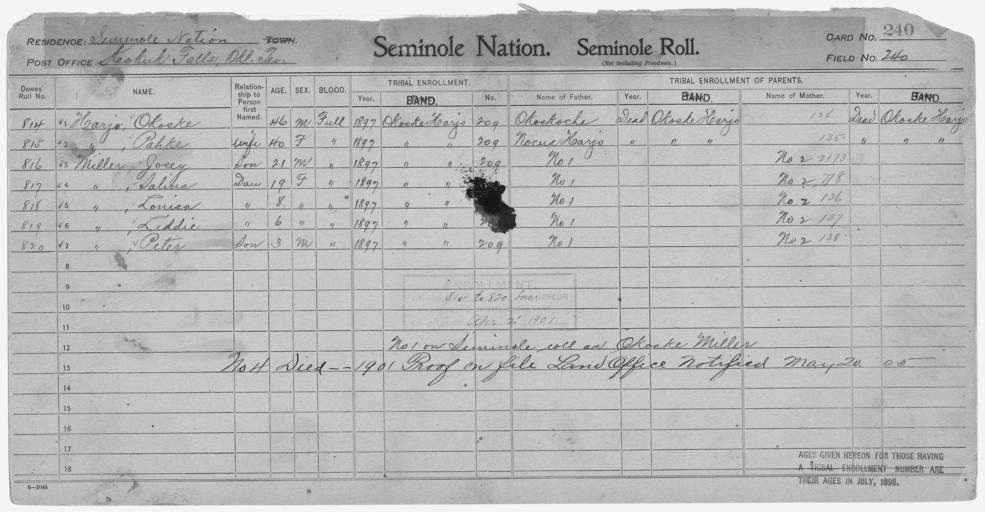 RESIDENCE: Seminole Nation TOWN. Seminole Nation. Seminole Roll. CARD NO. 240
POST OFFICE: Keokuk Falls, Okl. Ter. (Not including Freedmen.) FIELD NO. 240
Dawes' Roll No. NAME. Relationship to Person first Named. AGE. SEX. BLOOD. TRIBAL ENROLLMENT. TRIBAL ENROLLMENT OF PARENTS.
Year. BAND. No. Name of Father. Year. BAND. Name of Mother. Year. BAND.
814 1 Harjo, Okoske 46 M Full 1897 Okoske Harjo 209 Okoskoche Dead Okoske Harjo Dead Okoske Harjo
815 2 " , Pahke Wife 40 F " 1897 " " 209 Nocus Harjo " " " 135 " " "
816 3 Miller, Jocey Son 21 M " 1897 " " 209 No 1 No 2 2173
817 4 " , Salina Dau 19 F " 1897 " " No 1 No 2 718
818 5 " , Louisa " 8 " " 1897 " " No 1 No 2 136
819 6 " , Liddie " 6 " " 1897 " " No 1 No 2 137
820 7 " , Peter Son 3 M " 1897 " " 209 No 1 No 2 138
8
9
ENROLLMENT
10 814 to 820 HEREON
11 Apr 2 1901
12 No 1 on Seminole roll as Okoske Miller
13 No 4 Died -- 1901 Proof on file Land Office Notified May 20. 05
14
15
16
17
18
AGES GIVEN HEREON FOR THOSE HAVING
A TRIBAL ENROLLMENT NUMBER ARE
THEIR AGES IN JULY, 1898.
6-1044